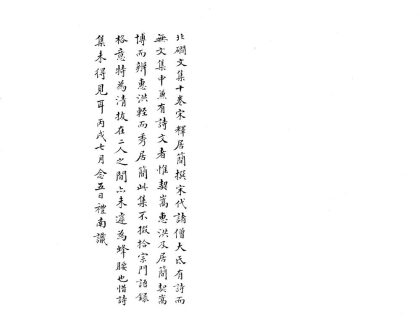 北磵文集十卷宋釋居簡撰宋代諸僧大氐有詩而
無文集中兼有詩文者惟契嵩惠洪及居簡契嵩
博而辨惠洪輕而秀居簡此集不掇拾宗門語錄
格意特為清拔在二人之間亦未遽為蜂腰也惜詩
集未得見耳丙戌七月念五日禮南識